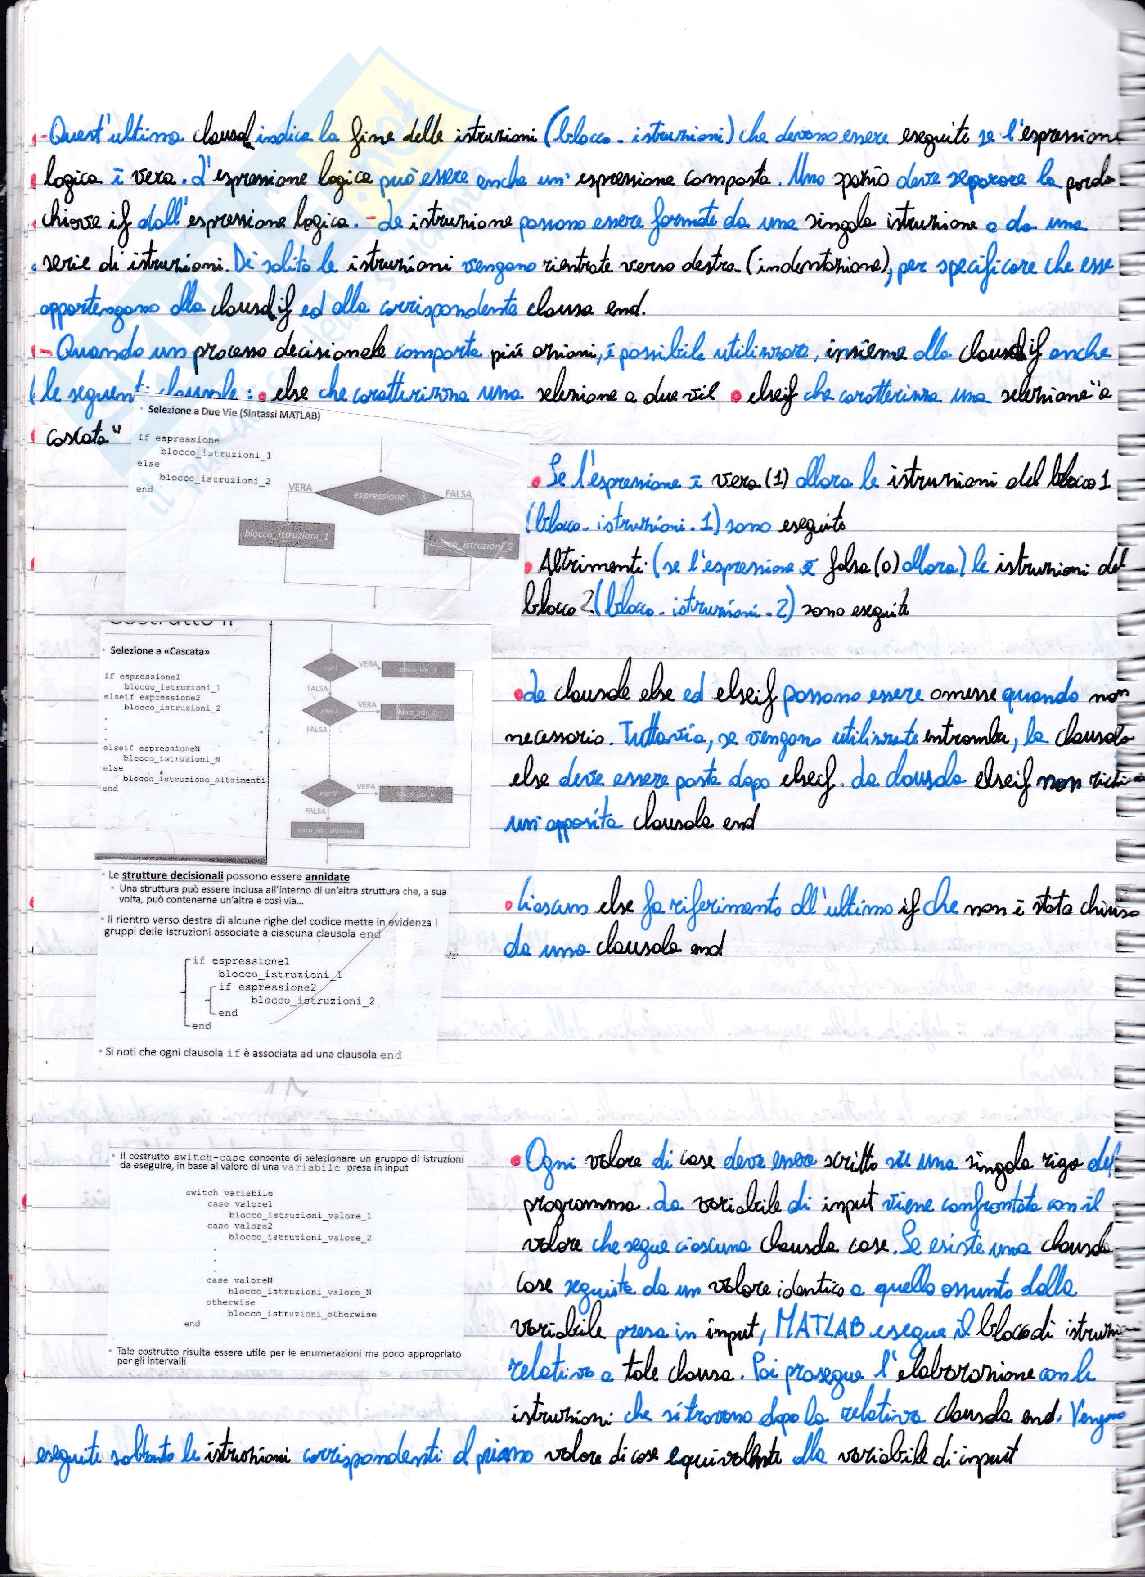 - Quest'ultima clausola indica la fine delle istruzioni (blocco_istruzioni) che devono essere eseguite se l'espressione
logica è vera. L'espressione logica può essere anche un' espressione composta. Uno spazio deve separare la parola
chiave if dall'espressione logica. - Le istruzione possono essere formate da una singola istruzione o da una
serie di istruzioni. Di solito le istruzioni vengono rientrate verso destra (indentazione), per specificare che esse
appartengono alla clausola if ed alla corrispondente clausa end.
- Quando un processo decisionale comporta più azioni, è possibile utilizzare, insieme alla clausola if anche
le seguenti clausole: • else che caratterizza una selezione a due vie • elseif che caratterizza una selezione "a
cascata"
• Selezione a Due Vie (Sintassi MATLAB)
if espressione
blocco_istruzioni_1
else
blocco_istruzioni_2
end
VERA espressione FALSA
blocco_istruzioni_1 blocco_istruzioni_2
• Se l'espressione è vera (1) allora le istruzioni del blocco 1
(blocco_istruzioni_1) sono eseguite
• Altrimenti (se l'espressione è falsa (0) allora) le istruzioni del
blocco 2 (blocco_istruzioni_2) sono eseguiti
Costrutto if
• Selezione a «Cascata»
if espressione1
blocco_istruzioni_1
elseif espressione2
blocco_istruzioni_2
.
.
.
elseif espressioneN
blocco_istruzioni_N
else
blocco_istruzione_altrimenti
end
VERA
FALSA
VERA
FALSA
VERA
FALSA
• Le clausole else ed elseif possono essere omesse quando non
necessario. Tuttavia, se vengono utilizzate entrambe, la clausola
else deve essere posta dopo elseif. La clausola elseif non
un'apposita clausola end
• Le strutture decisionali possono essere annidate
• Una struttura può essere inclusa all'interno di un'altra struttura che, a sua
volta, può contenerne un'altra e così via...
• Il rientro verso destre di alcune righe del codice mette in evidenza i
gruppi delle istruzioni associate a ciascuna clausola end
if espressione1
blocco_istruzioni_1
if espressione2
blocco_istruzioni_2
end
end
• Si noti che ogni clausola if è associata ad una clausola end
• Ciascuno else fa riferimento all'ultimo if che non è stato chiuso
da una clausola end
• Il costrutto switch-case consente di selezionare un gruppo di istruzioni
da eseguire, in base al valore di una variabile presa in input
switch variabile
case valore1
blocco_istruzioni_valore_1
case valore2
blocco_istruzioni_valore_2
.
.
.
case valoreN
blocco_istruzioni_valore_N
otherwise
blocco_istruzioni_otherwise
end
• Tale costrutto risulta essere utile per le enumerazioni ma poco appropriato
per gli intervalli
• Ogni valore di case deve essere scritto su una singola riga del
programma. La variabile di input viene confrontata con il
valore che segue ciascuna clausola case. Se esiste una clausola
case seguita da un valore identico a quello assunto dalla
variabile presa in input, MATLAB esegue il blocco di istruzioni
relativo a tale clausa. Poi prosegue l'elaborazione con le
istruzioni che si trovano dopo la relativa clausola end. Vengono
eseguite soltanto le istruzioni corrispondenti al primo valore di case equivalente alla variabile di input